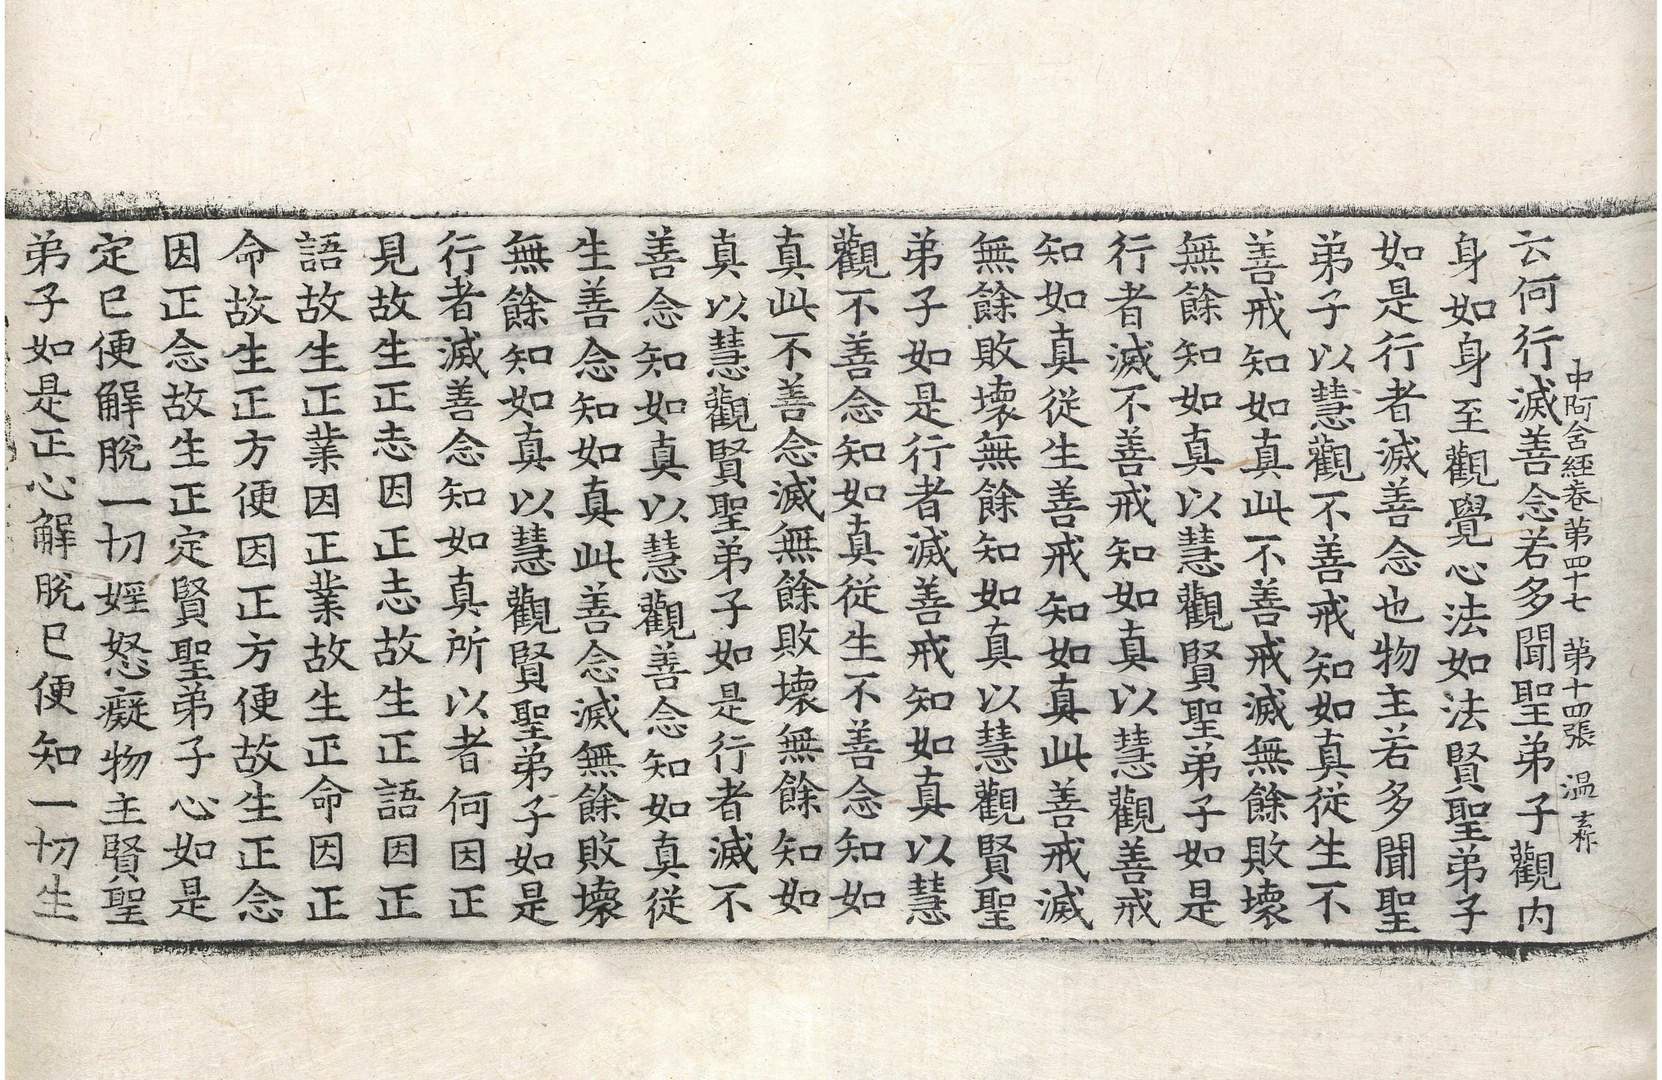 中阿含經卷第四十七 第十四張 温
云何行滅善念若多聞聖弟子觀内
身如身至觀覺心法如法賢聖弟子
如是行者滅善念也物主若多聞聖
弟子以慧觀不善戒知如真從生不
善戒知如真此不善戒滅無餘敗壞
無餘知如真以慧觀賢聖弟子如是
行者滅不善戒知如真以慧觀善戒
知如真從生善戒知如真此善戒滅
無餘敗壞無餘知如真以慧觀賢聖
弟子如是行者滅善戒知如真以慧
觀不善念知如真從生不善念知如
真此不善念滅無餘敗壞無餘知如
真以慧觀賢聖弟子如是行者滅不
善念知如真以慧觀善念知如真從
生善念知如真此善念滅無餘敗壞
無餘知如真以慧觀賢聖弟子如是
行者滅善念知如真所以者何因正
見故生正志因正志故生正語因正
語故生正業因正業故生正命因正
命故生正方便因正方便故生正念
因正念故生正定賢聖弟子心如是
定已便解脫一切婬怒癡物主賢聖
弟子如是正心解脫已便知一切生